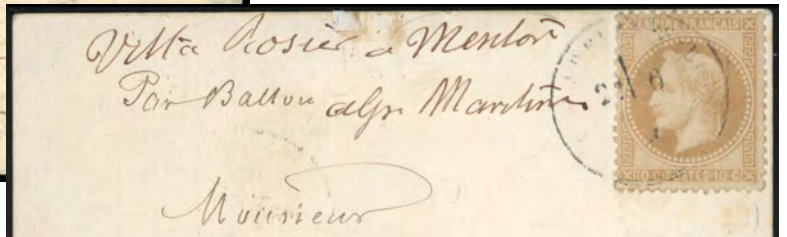 Villa Rosier a Menton
Par Ballon alpes Maritimes
Monsieur
EMPIRE FRANÇAIS
2 6
10 C POSTES 10 C